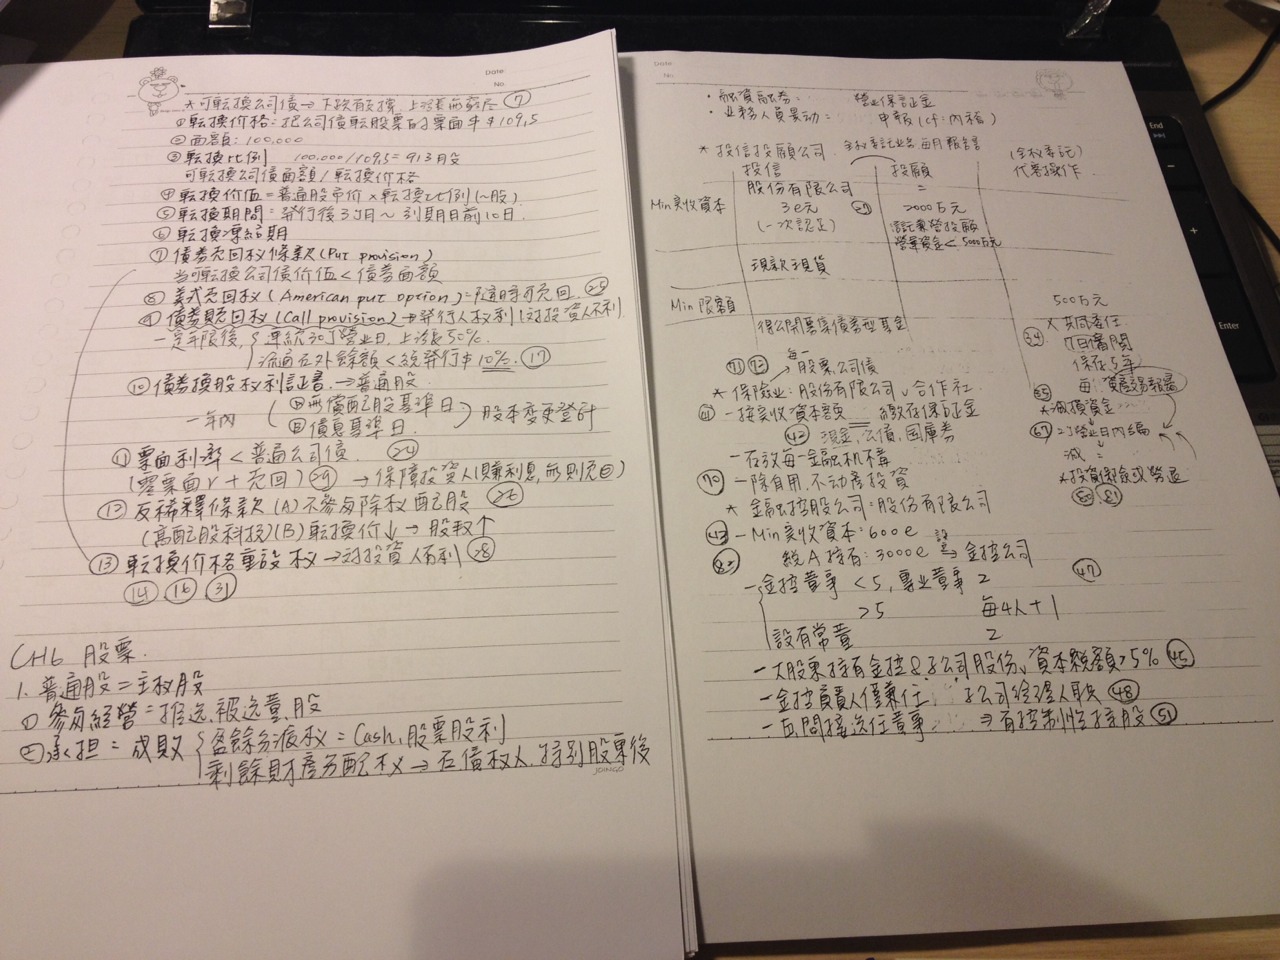 Date
No
*可転換公司債→下檔有撐,上漲而獲 ⑦
①転換价格:把公司債転股票的票面牛$109.5
②面額:100,000
③転換比例 100,000/109.5=913股
可転換公司債面額/転換价格
④転換价值=普通股市价×転換比例(~股)
⑤転換期間:発行後3ヶ月~到期日前10日.
⑥転換凍結期
⑦債券売回权條款(Put provision)
当可転換公司債价值<債券面額
⑧美式売回权(American put option)=隨時可売回. ㉕
⑨債券贖回权(Call provision)→発行人权利(対投資人不利
一定年限後, 連続30了營業日,上漲50%.
流通在外餘額<総発行$10%. ⑰
⑩債券換股权利証書→普通股.
一年內 無償配股基準日 股本変更登計
債息基準日.
⑪票面利率<普通公司債. ㉔
(零票面r+売回)㉙→保障投資人(賺利息,無則売回)
⑫反稀釋條款(A)不參与除权配股 ㉖
(高配股科技)(B)転換价↓→股数↑
⑬転換价格重設权→対投資人有利 ㉘
⑭ ⑯ ㉛
CH6 股票.
1.普通股=主权股
①參与經營=推选,被选董.股
②承担=成敗 盈餘分派权=Cash,股票股利
剩餘財產分配权→在債权人.特別股東後
JOINGO
Date
No
・融資融券: 營业保証金
・业務人員異动: 申報(cf:內稽)
*投信投顧公司. 全权委託业务每月報告 (全权委託)
投信 投顧 代客操作.
股份有限公司 =
Min実收資本 3e元 ㉗ 2000万元
(一次認足) 営業資金<5000万元
現款現貨
Min限額 500万元
得公開募集債券型基金 *共同委任
㉞ 7日審閱
保存5年
⑦① ⑦② 每一股票.公司債 每
*保險业:股份有限公司、合作社 *減損資金
㊶一按実收資本額 繳存保証金 ⑥⑦ 2了營业日內編
㊷現金,公債,国庫券 減=
一存放每一金融机構 *投資
⑦⓪一除自用.不动產投資 ⑧⓪ ⑧①
*金融控股公司:股份有限公司
㊸一Min実收資本:600e
⑧② 総A持有:3000e 設立⇒金控公司
一金控董事<5,專业董事2 ㊼
>5 每4人+1
設有常董 2
一大股東持有金控&子公司股份、資本総額>5% ㊺
一金控負責人僅兼任 子公司経理人職 ㊽
一直,間接选任董事 ⇒有控制性持股 ㊿①
End
Enter